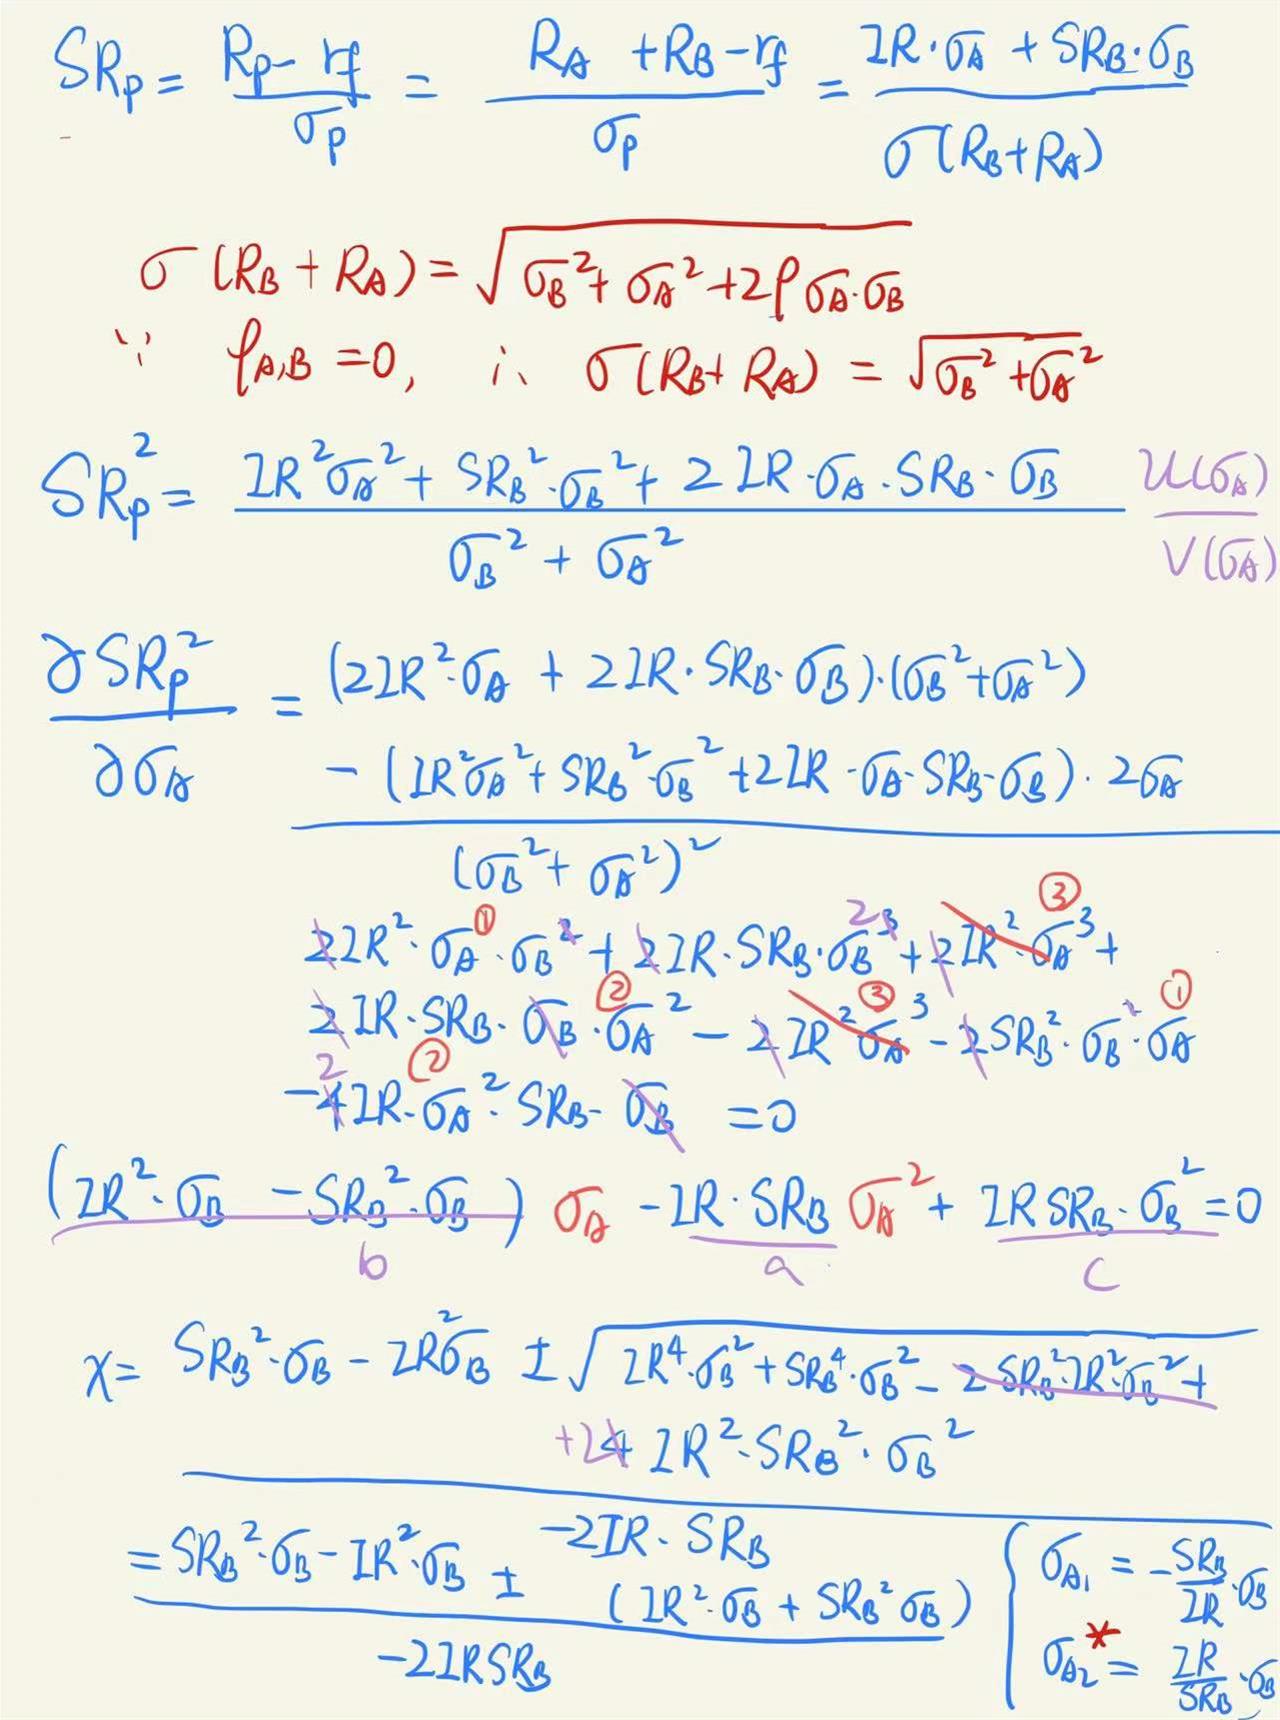 SRp = (Rp - rf)/σp = (RA + RB - rf)/σp = (IR·σA + SRB·σB)/σ(RB+RA)
σ(RB + RA) = √(σB² + σA² + 2ρσA·σB)
∵ ρA,B = 0, ∴ σ(RB + RA) = √(σB² + σA²)
SRp² = (IR²σA² + SRB²·σB² + 2IR·σA·SRB·σB)/(σB² + σA²) U(σA)/V(σA)
∂SRp²/∂σA = (2IR²·σA + 2IR·SRB·σB)·(σB² + σA²)
- (IR²σA² + SRB²·σB² + 2IR·σA·SRB·σB)·2σA
(σB² + σA²)²
2IR²·σA①·σB² + 2IR·SRB·σB³ 2 + 2IR²·σA³ ③ +
2IR·SRB·σB·σA² ② - 2IR²σA³ ③ - 2SRB²·σB²·σA ①
-4 2 IR·σA²·SRB·σB ② = 0
(IR²·σB - SRB²·σB) σA - IR·SRB σA² + IR SRB·σB² = 0
b a c
x = SRB²·σB - IR²σB ± √(IR⁴·σB² + SRB⁴·σB² - 2SRB²·IR²·σB² +
+2 4 IR²·SRB²·σB²
-2IR·SRB
= SRB²·σB - IR²·σB ± (IR²·σB + SRB²σB)
-2IRSRB
σA1 = -SRB/IR·σB
σA2* = IR/SRB·σB